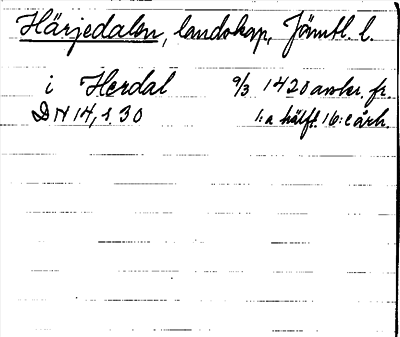 Härjedalen, landskap, Jämtl. l.
i Herdal 9/3 1420 avskr. fr.
DN 14, s. 30 1:a hälft. 16:e årh.